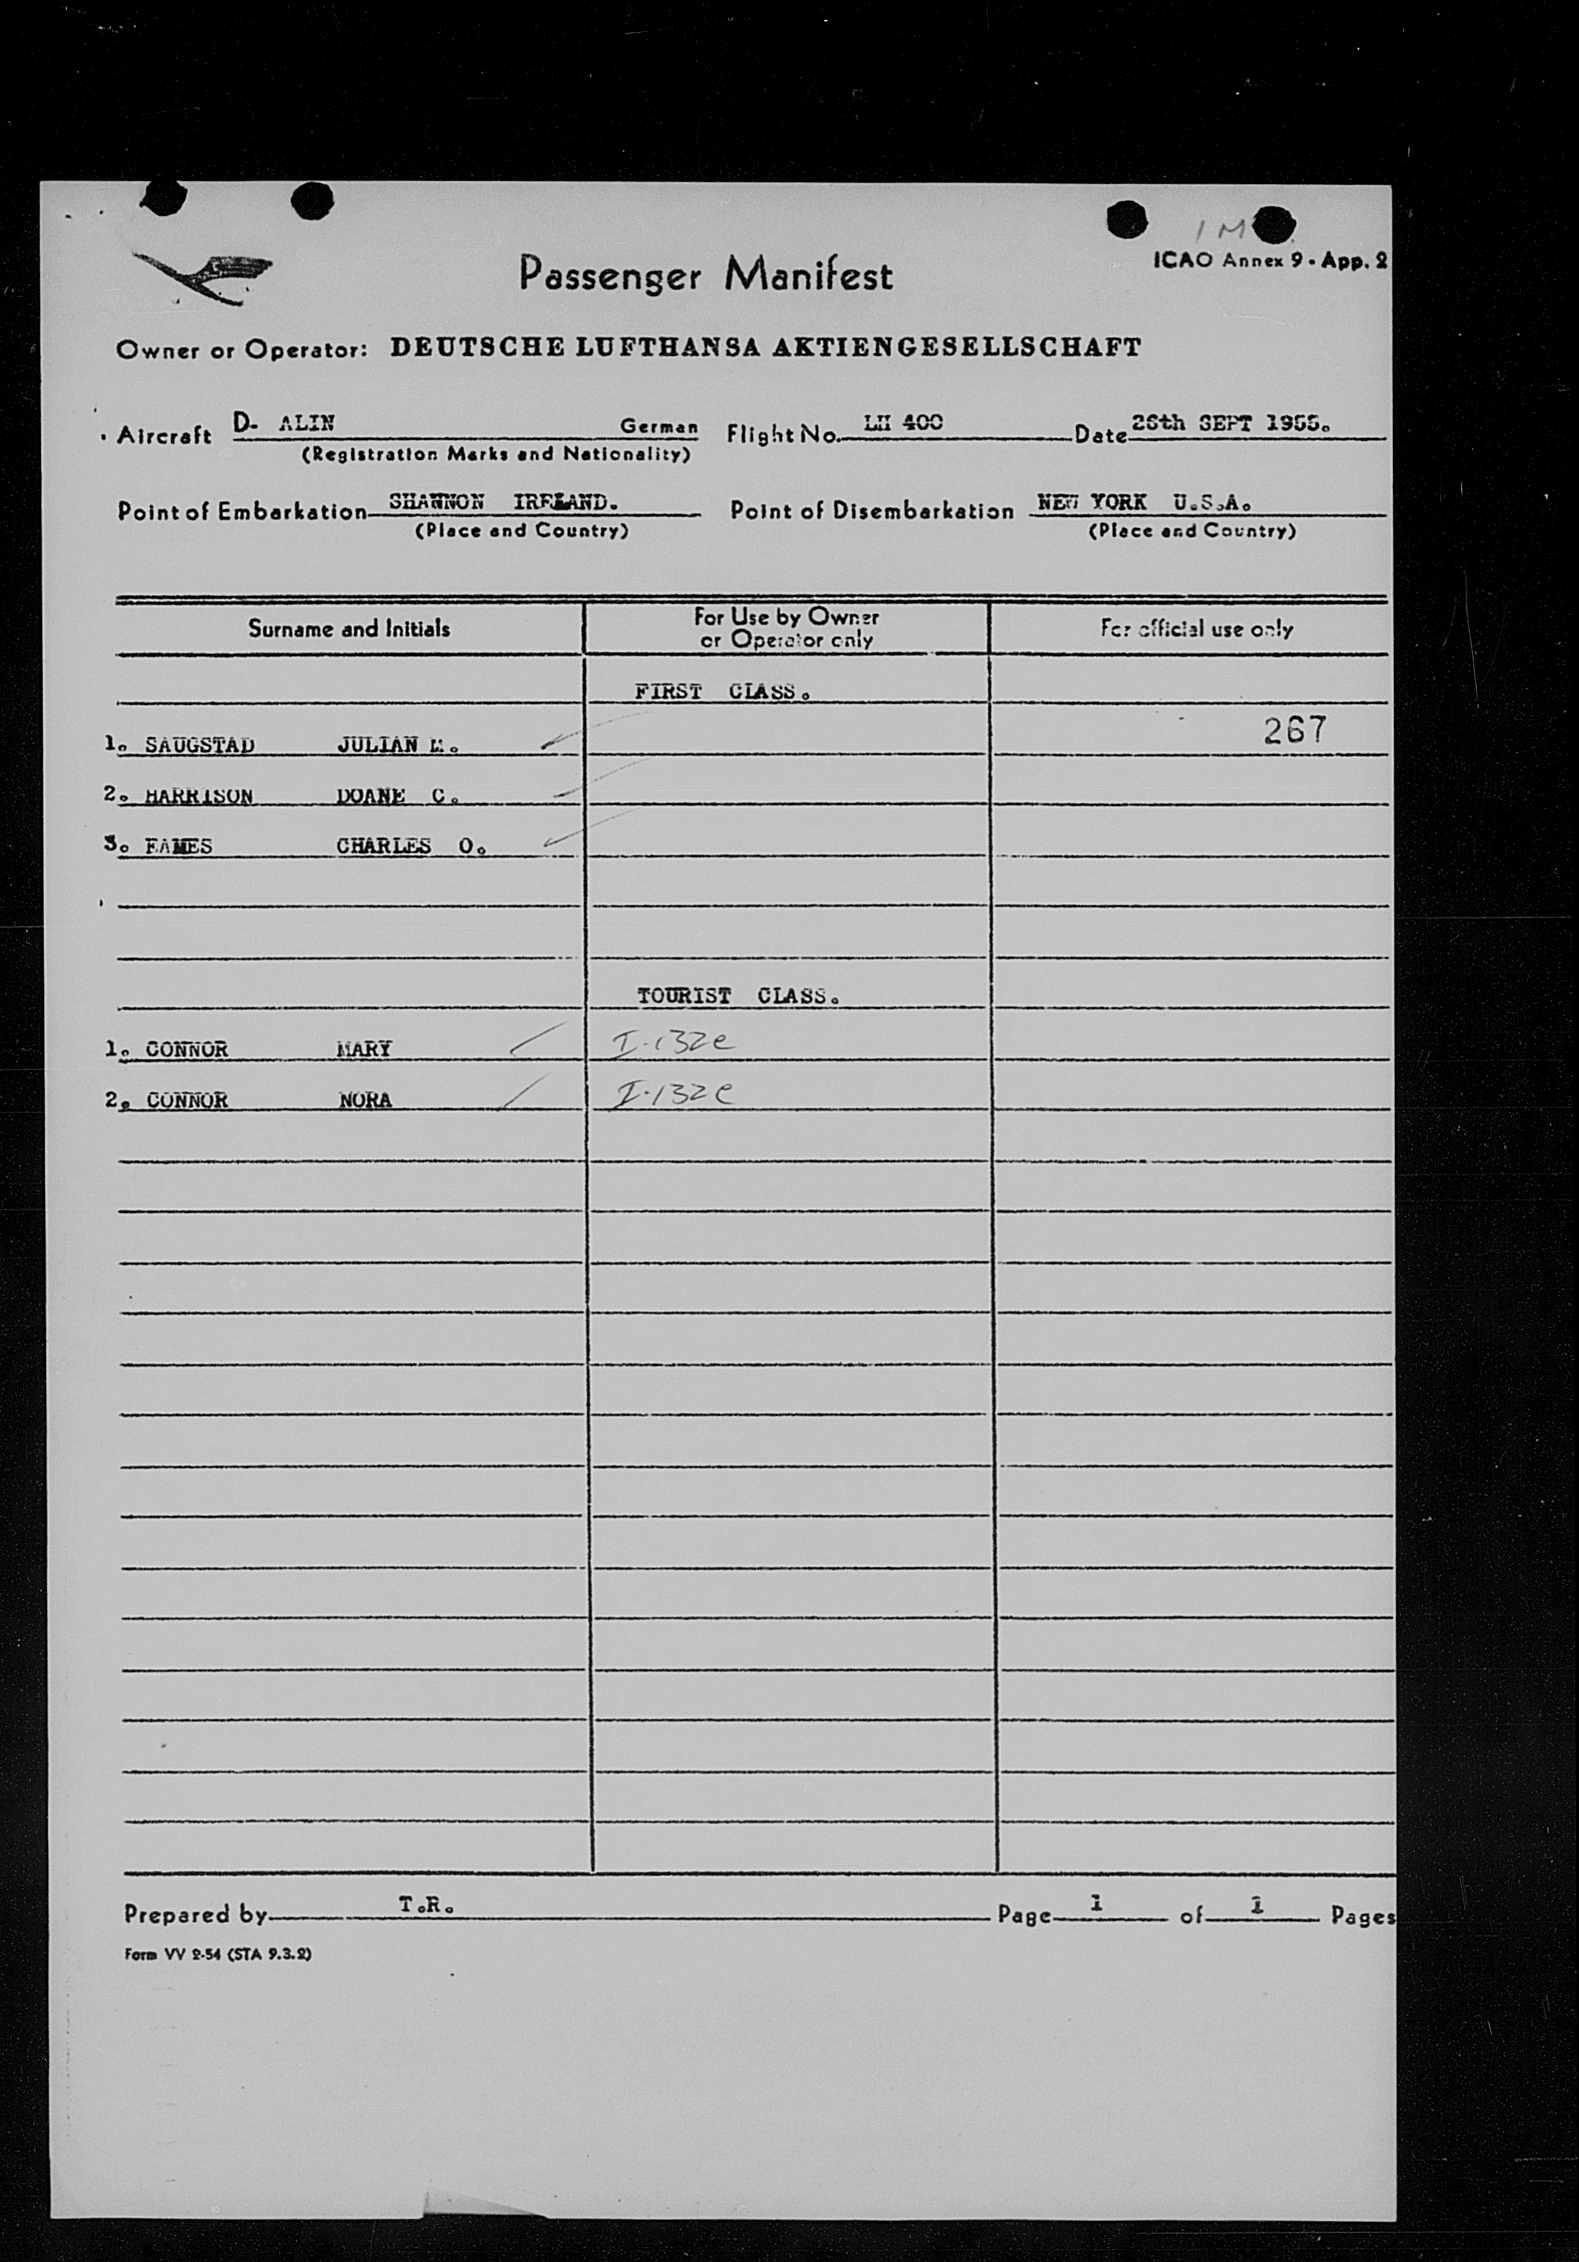 1 M
ICAO Annex 9 - App. 2
Passenger Manifest
Owner or Operator: DEUTSCHE LUFTHANSA AKTIENGESELLSCHAFT
Aircraft D- ALIN German Flight No. LH 400 Date SEPT 1955.
(Registration Marks and Nationality)
Point of Embarkation SHANNON IRELAND. Point of Disembarkation NEW YORK U.S.A.
(Place and Country) (Place and Country)
Surname and Initials For Use by Owner or Operator only For official use only
FIRST CLASS.
267
1. SAUGSTAD JULIAN M.
2. HARRISON DOANE C.
3. EAMES CHARLES O.
TOURIST CLASS.
1. CONNOR MARY I-132e
2. CONNOR NORA I-132e
Prepared by T.R. Page 1 of 1 Pages
Form VV 2-54 (STA 9.3.2)